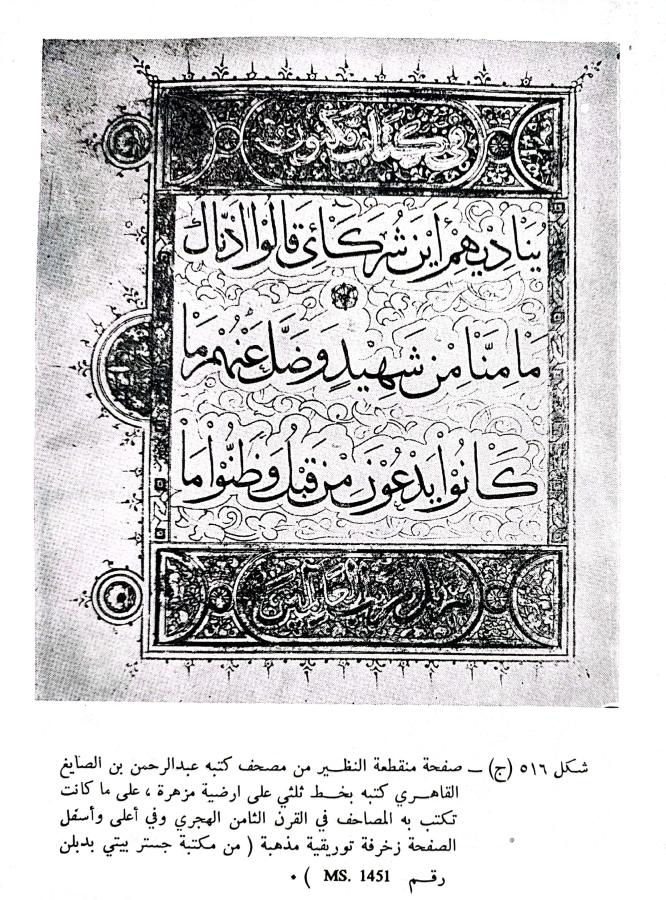 في كتاب مكنون
يُنَادِيهِمْ أَيْنَ شُرَكَائِي قَالُوا اذَنَّاكَ
مَا مِنَّا مِن شَهِيدٍ وَضَلَّ عَنْهُم مَا
كَانُوا يَدْعُونَ مِن قَبْلُ وَظَنُّوا مَا
تنزيل من رب العالمين
شكل ٥١٦ (ج) — صفحة منقطعة النظير من مصحف كتبه عبدالرحمن بن الصايغ
القاهري كتبه بخط ثلثي على ارضية مزهرة ، على ما كانت
تكتب به المصاحف في القرن الثامن الهجري وفي أعلى وأسفل
الصفحة زخرفة توريقية مذهبة ( من مكتبة جستر بيتي بدبلن
رقم MS. 1451 ) ٠